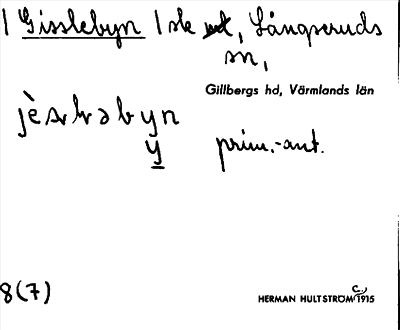 | Gisslebyn | ske, Långseruds
sn,
Gillbergs hd, Värmlands län
y prim.-ant.
8(7)
HERMAN HULTSTRÖM C:a 1915